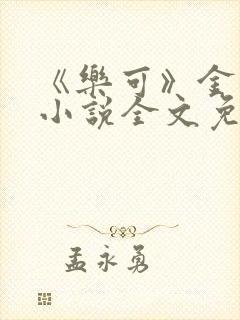 《樂可》金
小說全文免
孟永勇